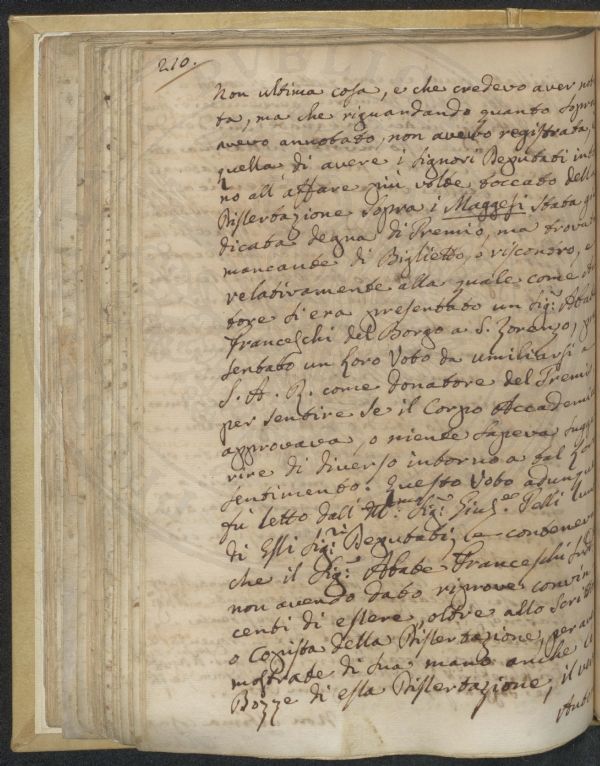 210.
Non ultima cosa, e che credevo aver no
ta, ma che riguardando quanto sopra
avevo annotato, non avevo registrata,
quella di avere i Signori Deputati int
no all'affare più volte toccato della
Dissertazione sopra i Maggesi stata
dicata degna di Premio, ma trovata
mancante di Biglietto, o riscontro, e
relativamente alla quale come
tore si era presentato un Sig.r Abate
Franceschi del Borgo a S. Lorenzo,
sentato un Loro Voto da umiliarsi a
S. A. R. come donatore del Premio
per sentire se il Corpo Accademico
approvava, o niente sapeva sugge
rire di diverso intorno a tal Loro
sentimento. Questo Voto adunque
fù letto dall' Ill.mo Sig.r Gius.e Pelli
di Essi Sig.ri Deputati, e conteneva
che il Sig.r Abate Franceschi
non avendo dato riprove convin
centi di essere, oltre allo Scritt
o Copista della Dissertazione, per
mostrate di sua mano anche
Bozze di essa Dissertazione, il
Autor